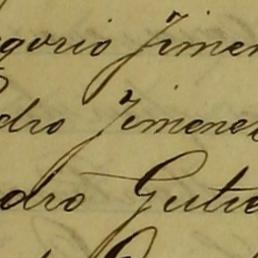 egorio Jimen
edro Jimenez
edro Gutie